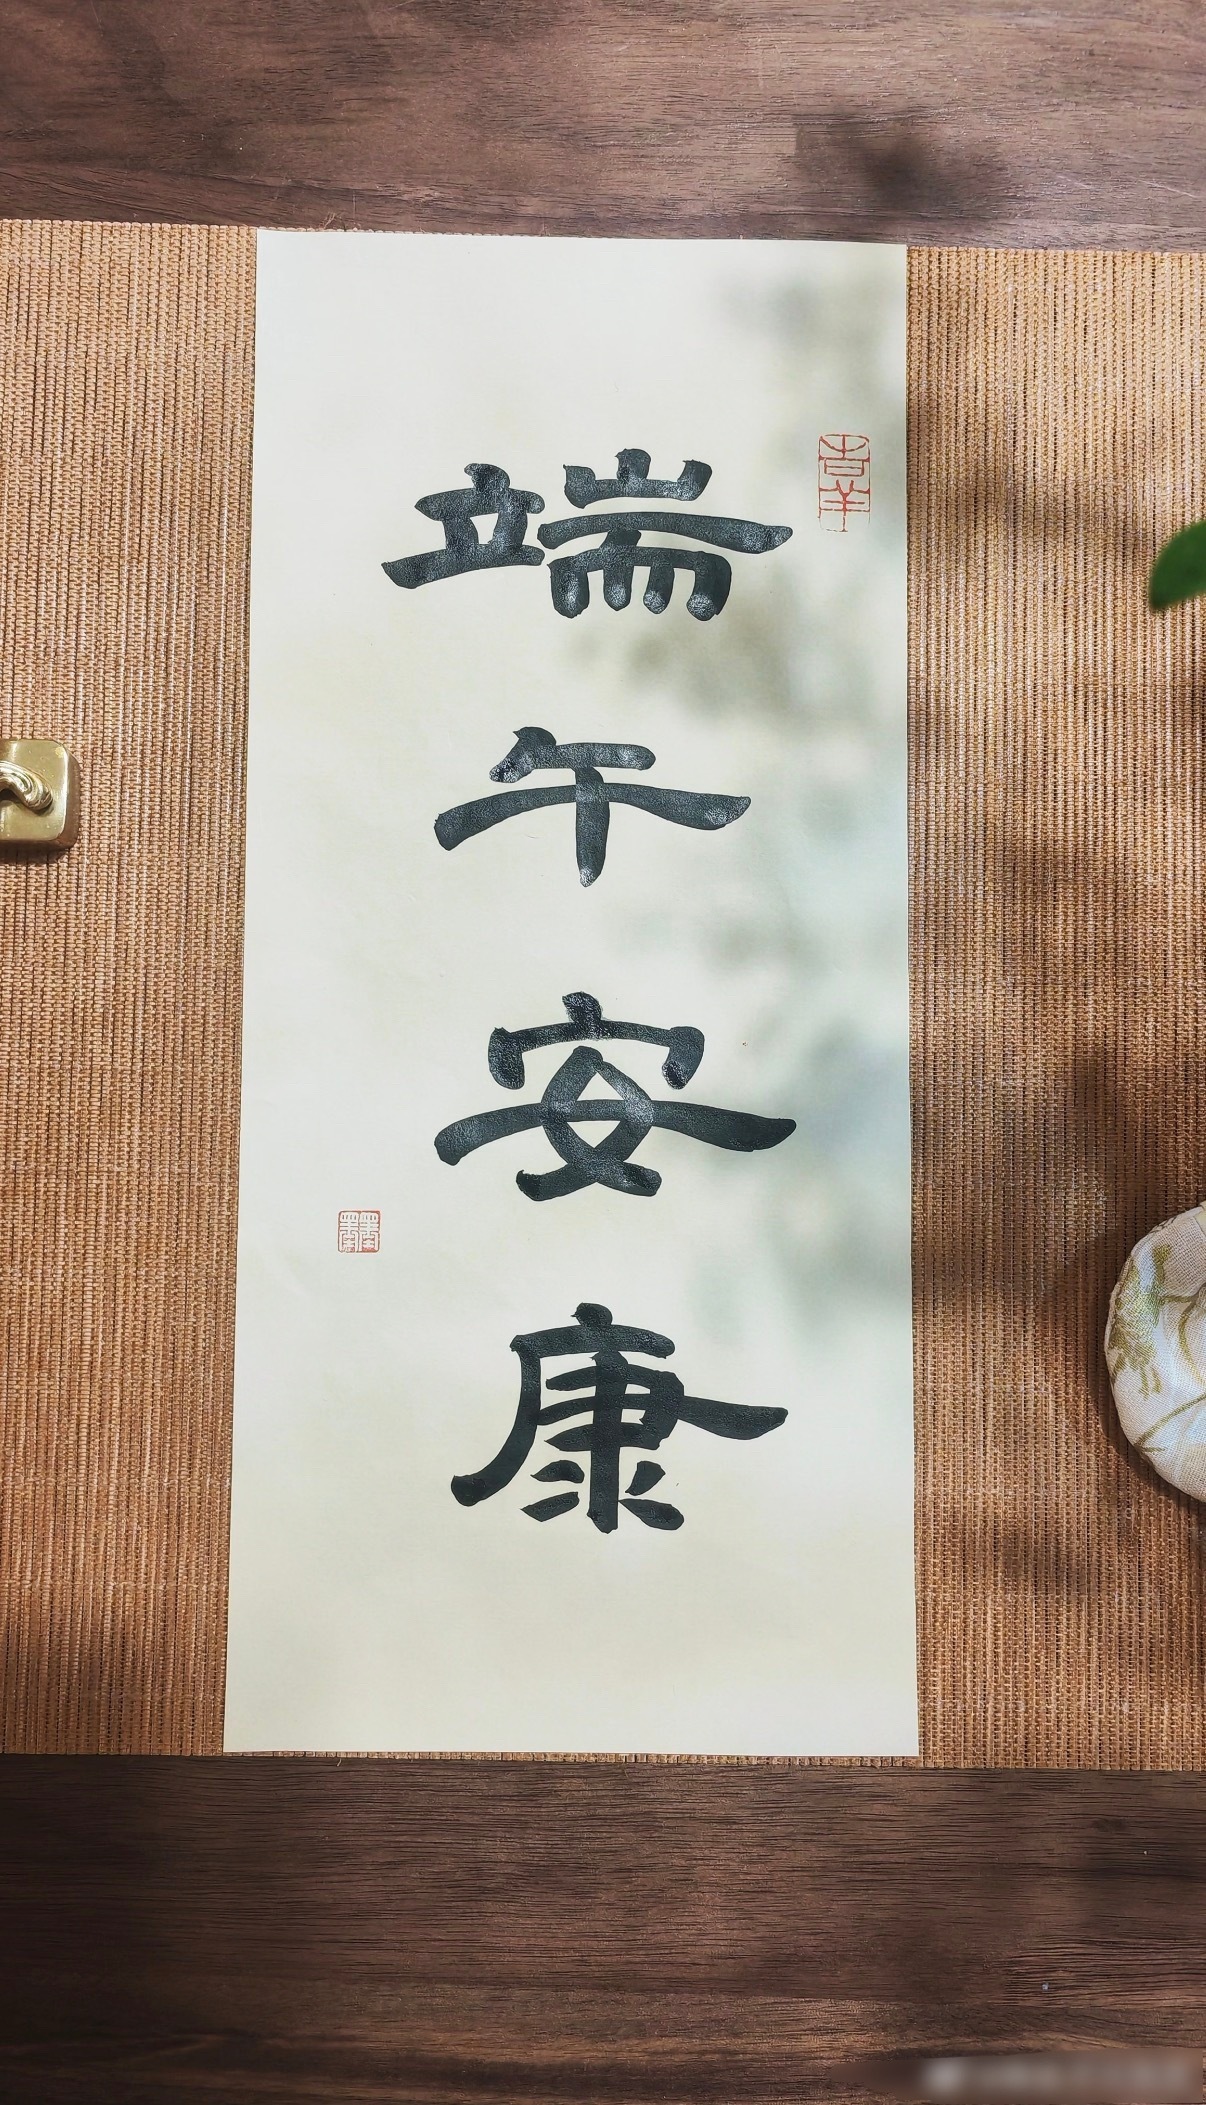 端午安康
吉羊